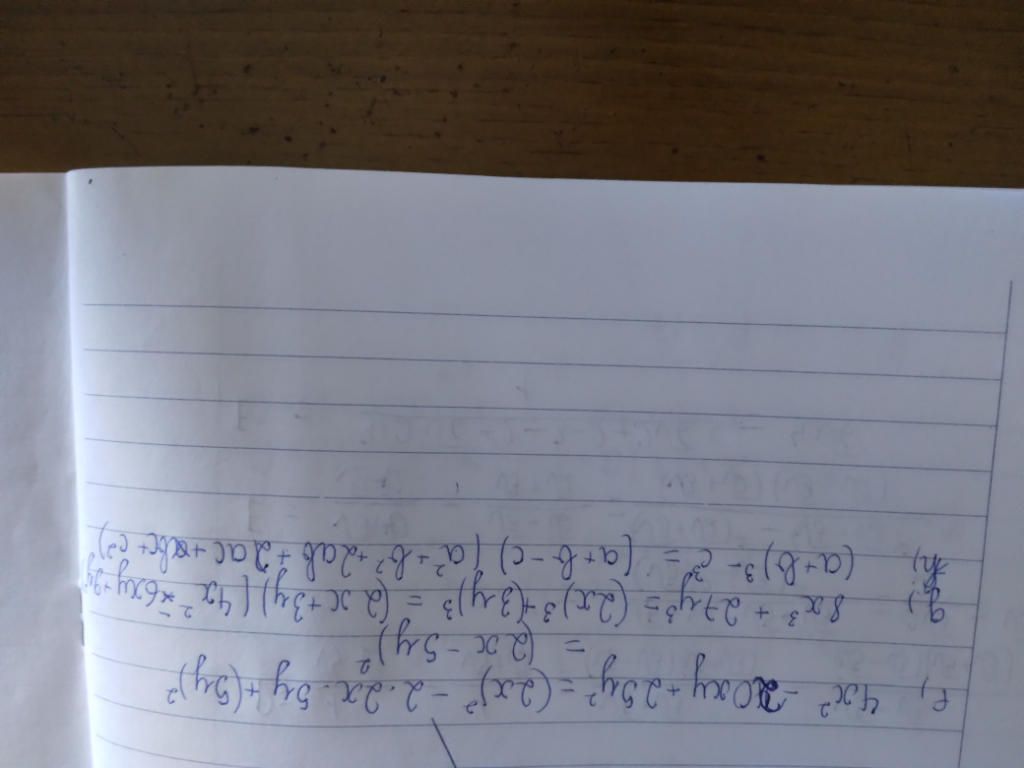 f, 4x² - 20xy + 25y² = (2x)² - 2.2x.5y + (5y)²
= (2x - 5y)²
g) 8x³ + 27y³ = (2x)³ + (3y)³ = (2x+3y)(4x² - 6xy + 9y²
h) (a+b)³ - c³ = (a+b-c)(a² + b² + 2ab + ac + bc + c²)